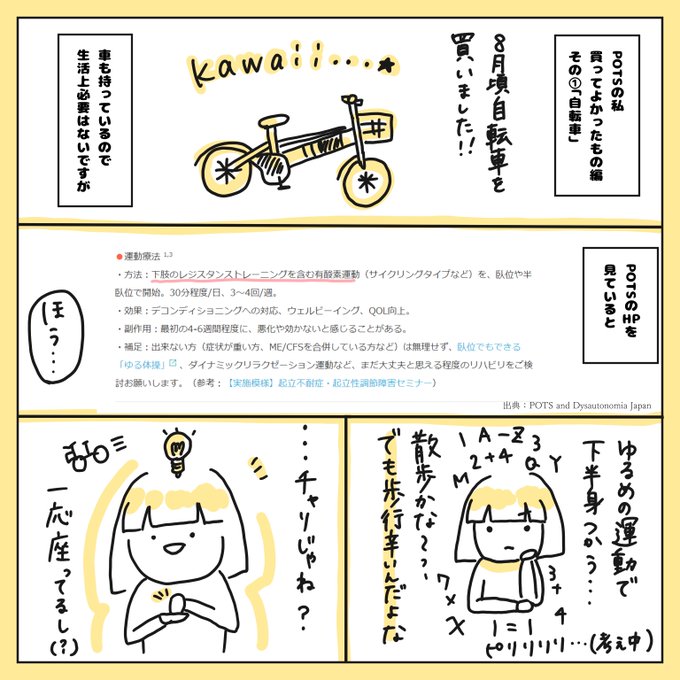 POTSの私
買ってよかったもの編
その①「自転車」
8月頃自転車を
買いました!!
kawaii...★
車も持っているので
生活上必要はないですが
POTSのHPを
見ていると
●運動療法 1,3
・方法：下肢のレジスタンストレーニングを含む有酸素運動（サイクリングタイプなど）を、臥位や半
臥位で開始。30分程度/日、3～4回/週。
・効果：デコンディショニングへの対応、ウェルビーイング、QOL向上。
・副作用：最初の4-6週間程度に、悪化や効かないと感じることがある。
・補足：出来ない方（症状が重い方、ME/CFSを合併している方など）は無理せず、臥位でもできる
「ゆる体操」、ダイナミックリラクゼーション運動など、まだ大丈夫と思える程度のリハビリをご検
討お願いします。（参考：【実施模様】起立不耐症・起立性調節障害セミナー）
出典：POTS and Dysautonomia Japan
ほう...
ゆるめの運動で
下半身つかう...
1 A-Z 3
M 2+4 Q Y
散歩かな〜っ
でも歩行辛いんだよな
7×X
3+4
1=1
ピリリリリ...(考え中)
...チャリじゃね？
一応座ってるし(?)